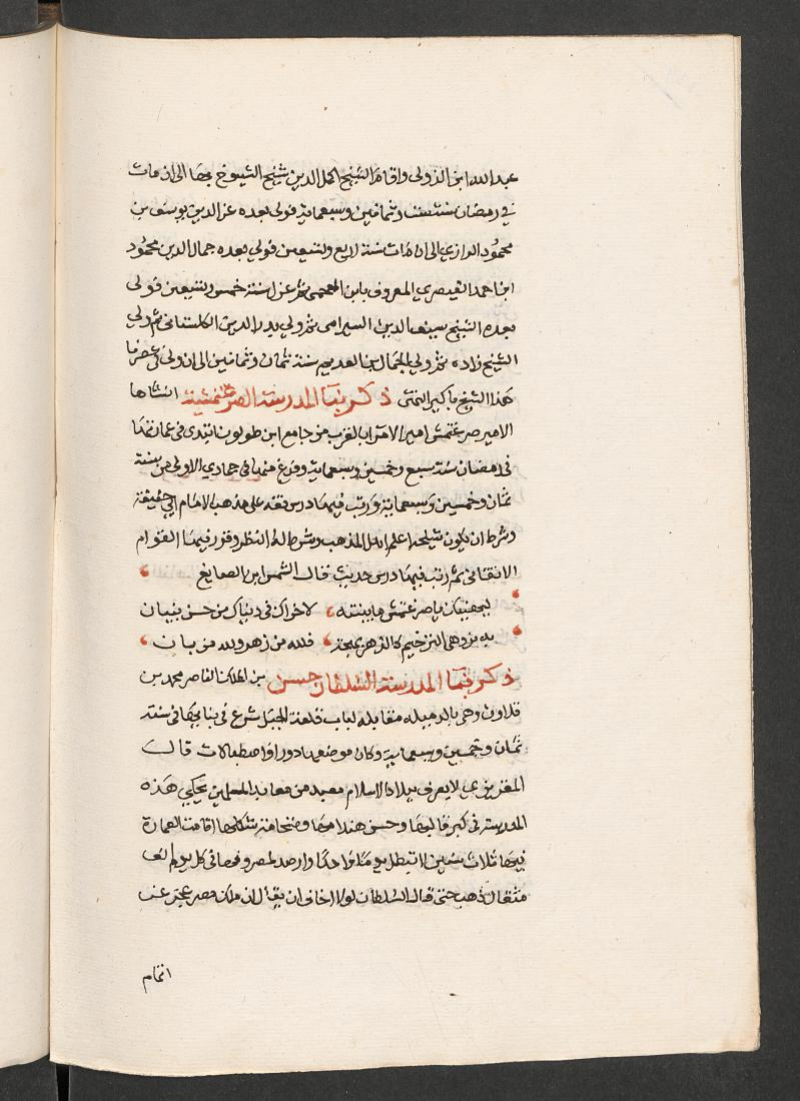 عبد الله ابن الزولي واقام الشيخ اكمل الدين شيخ الشيوخ بها الى ان مات
في رمضان سنة ست وثمانين وسبعماية فولي بعده عز الدين يوسف بن
محمود الرازي الى ان مات سنة اربع وتسعين فولي بعده جمال الدين محمود
ابن احمد القيصري المعروف بابن العجمي ثم عزل سنة خمس وتسعين فولى
بعده الشيخ سيف الدين السيرامى ثم ولي بدر الدين الكلستانى ثم ولي
الشيخ زاده ثم ولي الجمال بن العديم سنة ثمان وثمانين الى ان ولى في عصرنا
هذا الشيخ باكير النحتى ذكر بنا المدرسة الصرغتمشية انشاها
الامير صرغتمش امير الامرا بالقرب من جامع ابن طولون ابتدى فى عمارتها
فى رمضان سنة سبع وخمسين وسبعماية وفرغ منها في جمادي الاولى من سنة
ثمان وخمسين وسبعماية ورتب فيها درس فقه على مذهب الامام ابي حنيفة
وشرط ان يكون شيخها اعلم اهل المذهب وشرط له النظر وقرر فيها القوام
الاتقانى ثم رتب فيها درس حديث قال الشمس ابن الصايغ
ليهنيك يا صرغتمش ما بنيته لاخراك فى دنياك من حسن بنيان
به يزدهى الترخيم كالزهر بهجة فلله من زهر ولله من بان
ذكر بنا المدرسة السلطان حسن بن الملك الناصر محمد بن
قلاون وهى بالرميله مقابله لباب قلعة الجبل شرع في بنايها فى سنة
ثمان وخمسين وسبعماية وكان موضعها دورا واصطبلات قال
المقريزي لا يعرف ببلاد الاسلام معبد من معابد المسلمين يحكي هذه
المدرسة في كبر قالبها وحسن هندامها وضخامة شكلها اقامت العمارة
فيها ثلاث سنين لا تبطل يوما واحدا وارصد لمصروفها فى كل يوم الف
مثقال ذهب حتى قال السلطان لولا اخاف ان يقال ان ملك مصر عجز عن
اتمام